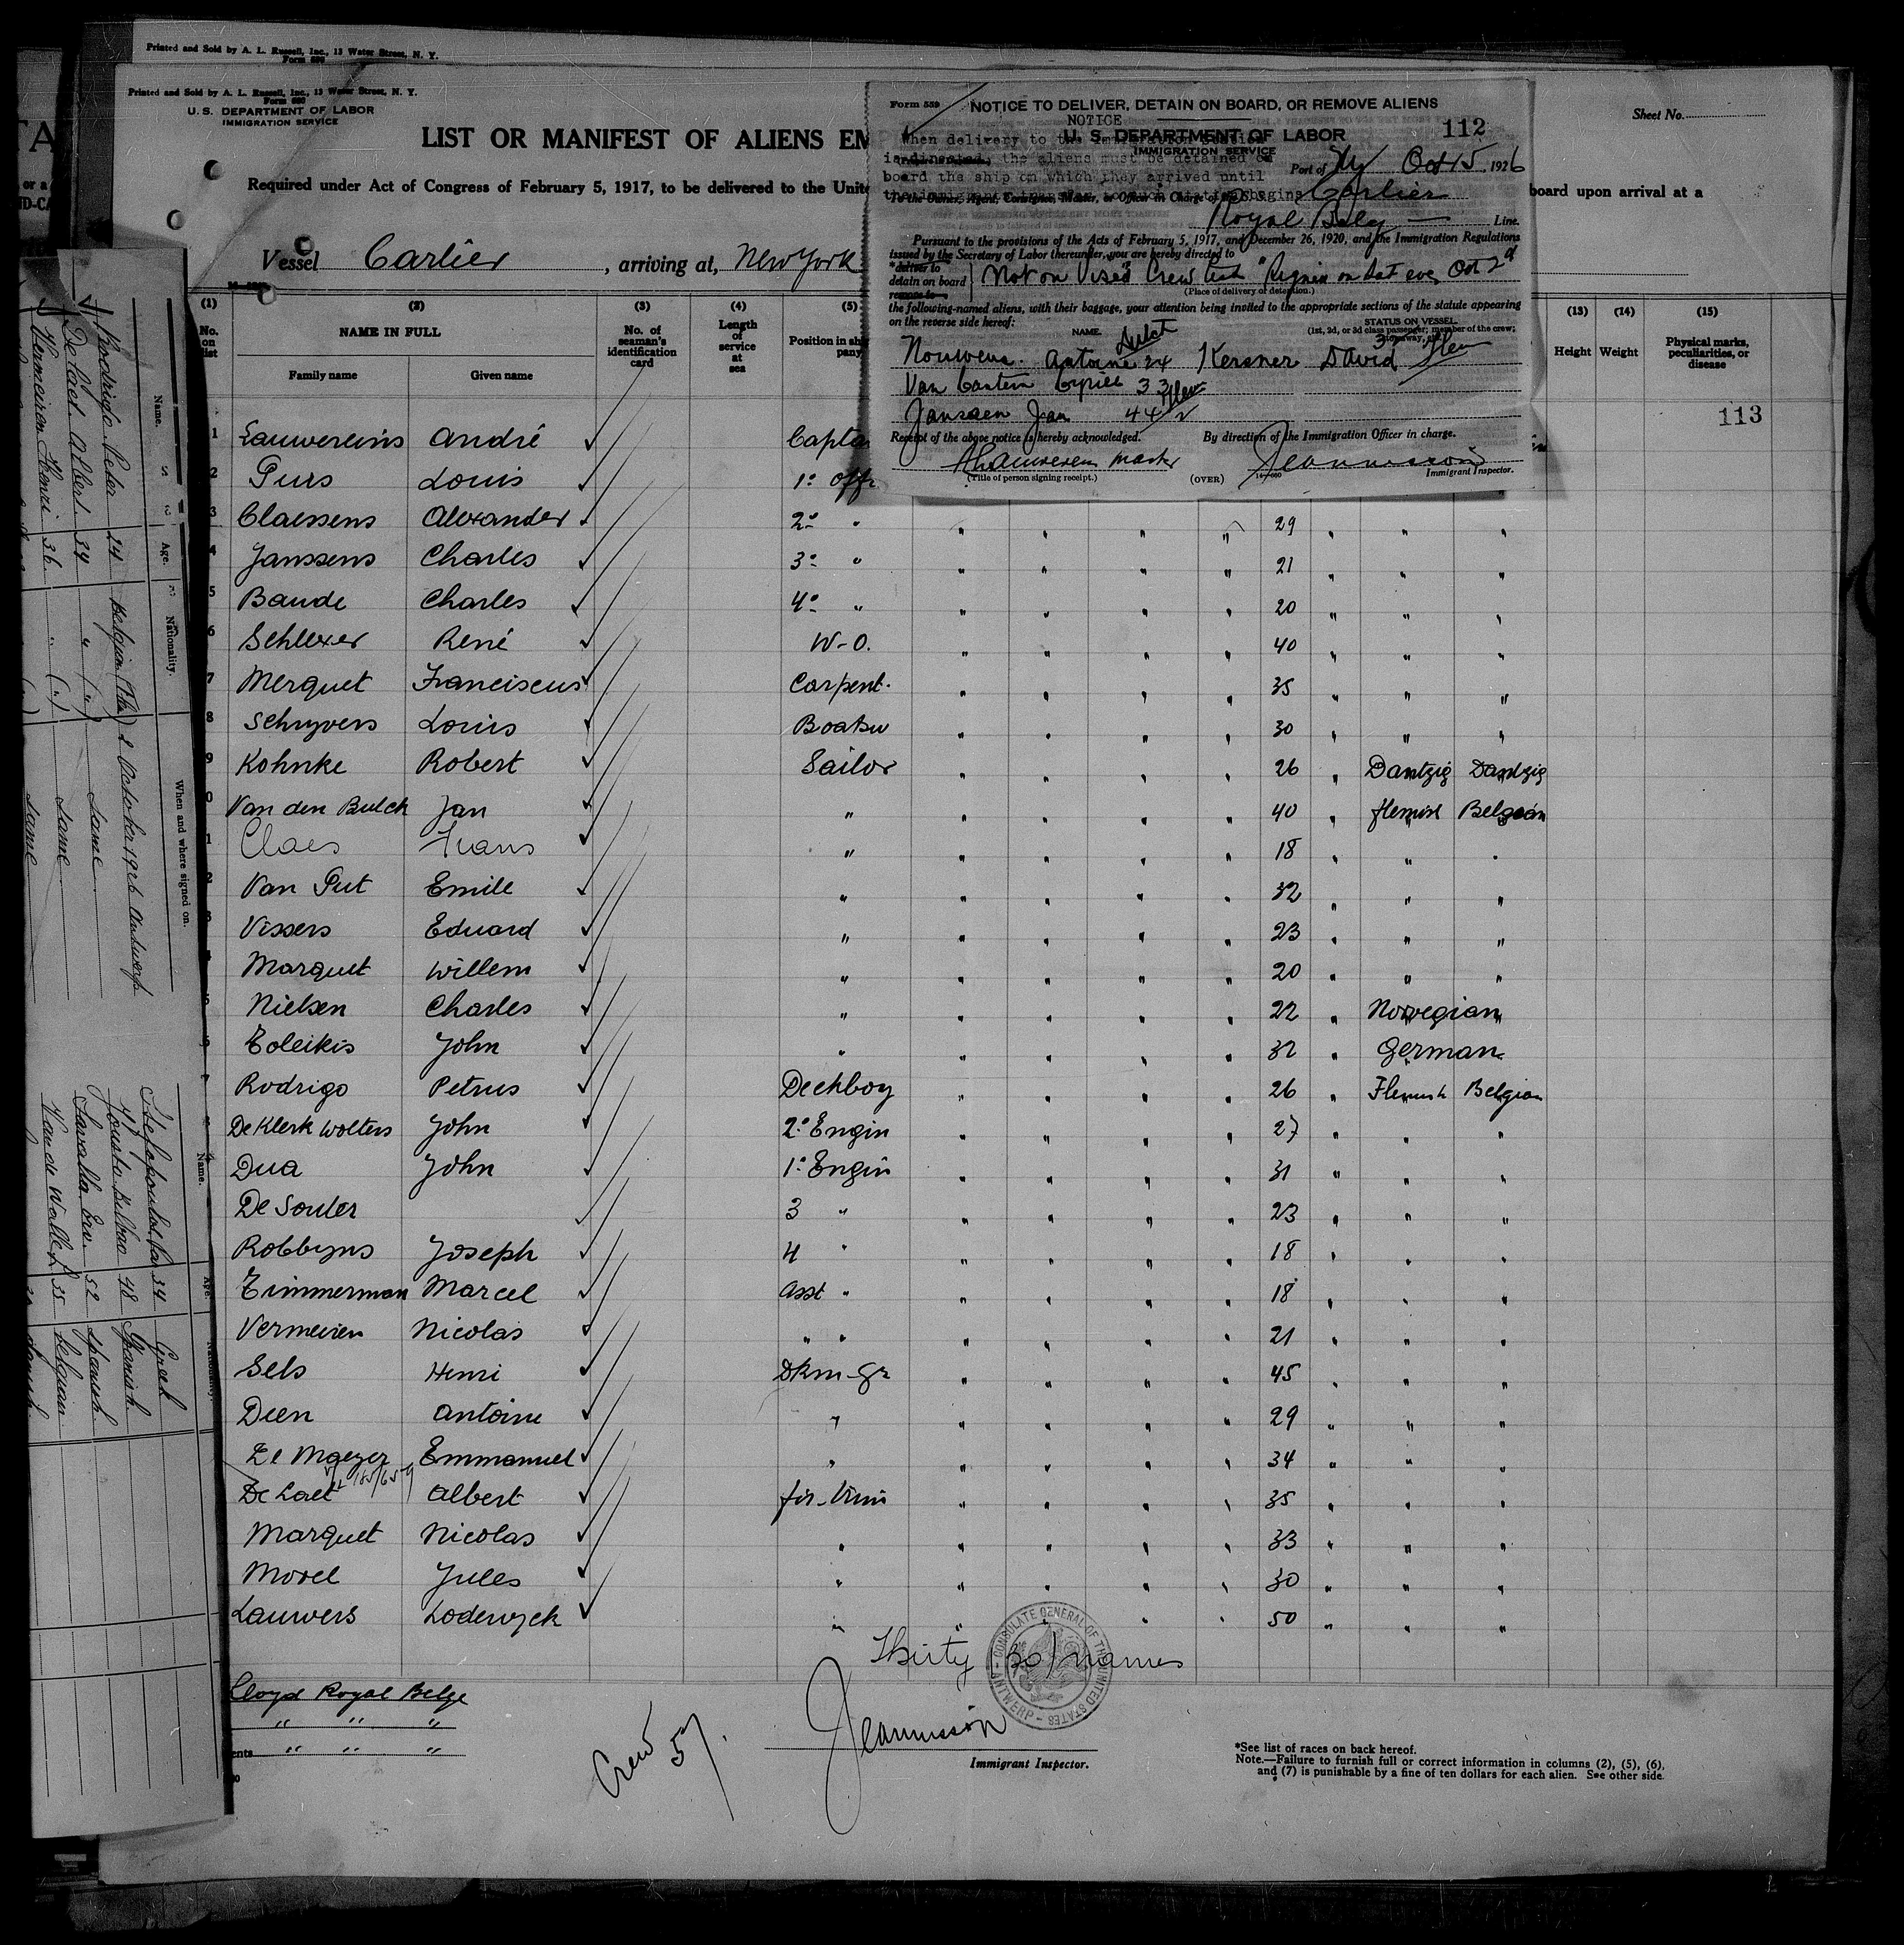 Printed and Sold by A. L. Russell, Inc., 13 Water Street, N. Y.
Form 680
Printed and Sold by A. L. Russell, Inc., 13 Water Street, N. Y.
Form 680
U. S. DEPARTMENT OF LABOR
IMMIGRATION SERVICE
LIST OR MANIFEST OF ALIENS EM
Required under Act of Congress of February 5, 1917, to be delivered to the Unite
board upon arrival at a
Sheet No.
Vessel Carlier, arriving at, New York
Form 559
NOTICE TO DELIVER, DETAIN ON BOARD, OR REMOVE ALIENS
NOTICE
U. S. DEPARTMENT OF LABOR
112
IMMIGRATION SERVICE
When delivery to the
the aliens must be detained on
board the ship on which they arrived until
begins
Port of NY Oct 15, 1926
To the Owner, Agent, Consignee, Master, or Officer in Charge of the S. S. Carlier
Royal Belg Line.
Pursuant to the provisions of the Acts of February 5, 1917, and December 26, 1920, and the Immigration Regulations
issued by the Secretary of Labor thereunder, you are hereby directed to
*deliver to
detain on board
remove to
Not on Vised Crew List on Sat eve Oct 2d
(Place of delivery or detention.)
the following-named aliens, with their baggage, your attention being invited to the appropriate sections of the statute appearing
on the reverse side hereof:
NAME.
STATUS ON VESSEL
(1st, 2d, or 3d class passenger; member of the crew;
stowaway, etc.)
Nouwens Antoine 24 Kersner David
Van Cantern Cyrill 33
Janssen Jan 44
Receipt of the above notice is hereby acknowledged.
By direction of the Immigration Officer in charge.
master
(Title of person signing receipt.)
(OVER)
Immigrant Inspector.
(1) (2) (3) (4) (5) (13) (14) (15)
No. on list
NAME IN FULL
Family name Given name
No. of seaman's identification card
Length of service at sea
Position in ship
pany
Height Weight
Physical marks, peculiarities, or disease
113
1 Lauwereins André Capta
2 Purs Louis 1º offr
3 Claessens Alexander 2º " " " " " 29 " " "
4 Janssens Charles 3º " " " " " 21 " " "
5 Baude Charles 4º " " " " " 20 " " "
6 Schlexer René W-O. " " " " 40 " " "
7 Merquet Franciscus Carpent. " " " " 35 " " "
8 Schryvers Louis Boatsw " " " " 30 " " "
9 Kohnke Robert Sailor " " " " 26 " Dantzig Dantzig
0 Van den Bulck Jan " " " " " 40 " flemish Belgian
1 Claes Frans " " " " " 18 " " "
2 Van Put Emile " " " " " 32 " " "
3 Vissers Eduard " " " " " 23 " " "
4 Marquet Willem " " " " " 20 " " "
5 Nielsen Charles " " " " " 22 " Norwegian "
6 Eoleikis John " " " " " 32 " German
7 Rodrigo Petrus Deckboy " " " " 26 " Flemish Belgian
De Klerk Wolters John 2º Engin " " " " 27 " " "
Dua John 1º Engin " " " " 31 " " "
De Souter 3 " " " " " 23 " " "
Robbyns Joseph 4 " " " " " 18 " " "
Timmerman Marcel Asst " " " " " 18 " " "
Vermeiren Nicolas " " " " " " 21 " " "
Sels Henri Dkm-Gr " " " " 45 " " "
Dien Antoine " " " " " 29 " " "
De Maeyer Emmanuel " " " " " 34 " " "
De Laet Albert fir-trim " " " " 35 " " "
Marquet Nicolas " " " " " 33 " " "
Morel Jules " " " " " 30 " " "
Lauwers Lodewyck " " " " " 50 " " "
Thirty (30) names
CONSULATE GENERAL OF THE UNITED STATES - ANTWERP -
Lloyd Royal Belge
" " "
ents " " "
Crew 57.
Immigrant Inspector.
*See list of races on back hereof.
Note.—Failure to furnish full or correct information in columns (2), (5), (6),
and (7) is punishable by a fine of ten dollars for each alien. See other side.
Name. Age. Nationality. When and where signed on.
Roodrigo Peder 24 Belgian 2 October 1926 Antwerp
De Laet Albert 34 " (") Same
Vermeiren Henri 36 " (") Same
Same
Name. Age. Nationality.
34 Greek
Bilbao 48 Spanish
52 Spanish
Van de Walle 35 Belgian